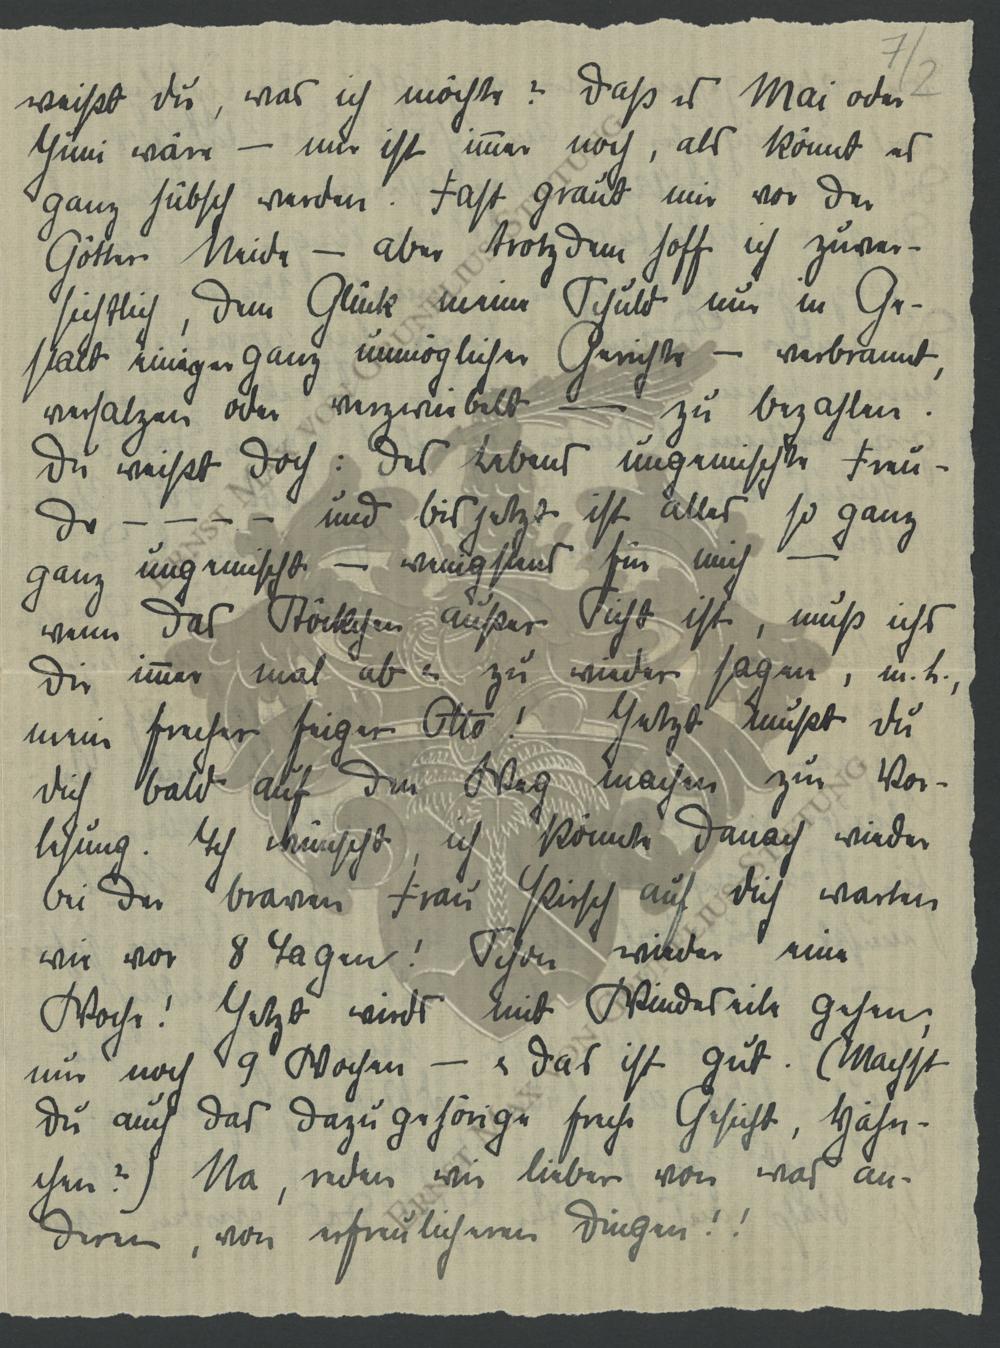 7/2
weißt du, was ich möchte? Daß es Mai oder
Juni wäre — mir ist im̄er noch, als könnt es
ganz hübsch werden. Fast graut mir vor der
Götter Neide — aber trotzdem hoff ich zuver-
sichtlich, dem Glück meine Schuld nur in Ge-
stalt einiger ganz unmöglicher Gerichte — verbrannt,
versalzen oder verzwiebelt — zu bezahlen.
Du weißt doch: des Lebens ungemischte Freu-
de — — — — und bis jetzt ist alles so ganz
ganz ungemischt — wenigstens für mich —
wenn das Stöckchen außer Sicht ist, muß ichs
dir im̄er mal ab u. zu wieder sagen, m. h.,
mein frecher feiger Otto! Jetzt mußt du
dich bald auf den Weg machen zur Vor-
lesung. Ich wünscht, ich könnte danach wieder
bei der braven Frau Kirsch auf dich warten
wie vor 8 Tagen! Schon wieder eine
Woche! Jetzt wirds mit Windeseile gehen,
nur noch 9 Wochen — u. das ist gut. (Machst
du auch das dazugehörige freche Gesicht, Hähn-
chen?) Na, reden wir lieber von was an-
deren, von erfreulicheren Dingen!!
ERNST MAX VON GRUNELIUS-STIFTUNG
ERNST MAX VON GRUNELIUS-STIFTUNG